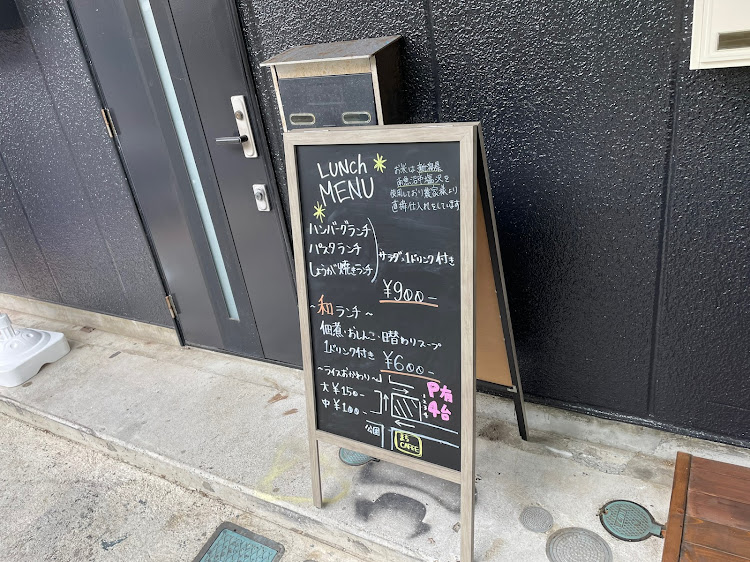 LUNCH
MENU
お米は新潟県
南魚沼市塩沢を
使用しており農家様より
直接仕入れをしています
ハンバーグランチ
パスタランチ
しょうが焼きランチ
サラダ・1ドリンク付き
¥900-
~和ランチ~
佃煮・おしんこ・日替わりスープ
1ドリンク付き
¥600-
~ライスおかわり~
大 ¥150-
中 ¥100-
P有
4台
公園
CAFFE